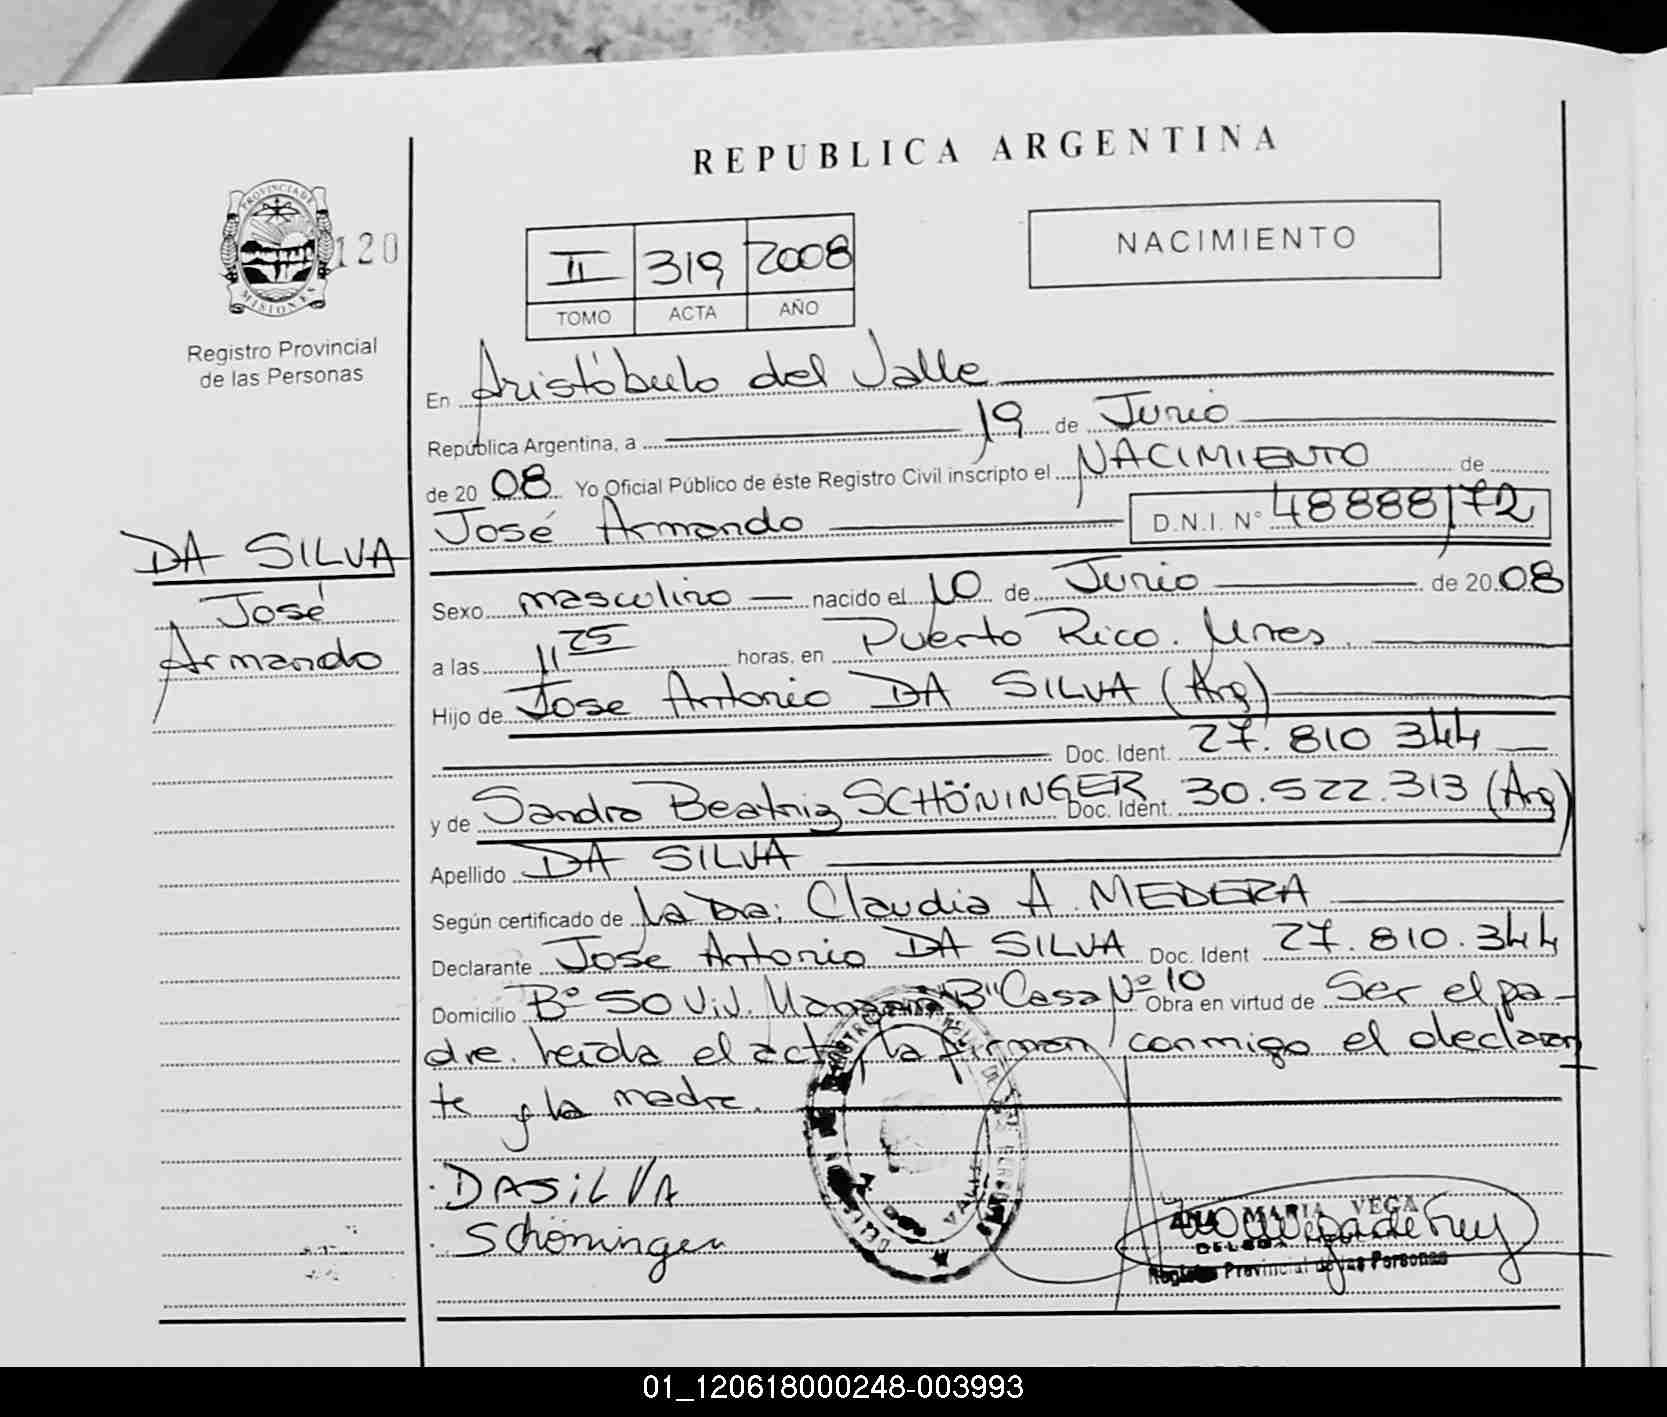 REPUBLICA ARGENTINA
PROVINCIA DE
MISIONES
120
Registro Provincial
de las Personas
II 319 2008
TOMO ACTA AÑO
NACIMIENTO
En Aristóbulo del Valle
República Argentina, a 19 de Junio
de 20 08 Yo Oficial Público de éste Registro Civil inscripto el NACIMIENTO de
José Armando D.N.I. N° 48888172
DA SILVA
José
Armando
Sexo masculino nacido el 10 de Junio de 20 08
a las 11 25 horas, en Puerto Rico. Mnes.
Hijo de Jose Antonio DA SILVA (Arg)
Doc. Ident. 27.810 344
y de Sandra Beatriz SCHÖNINGER Doc. Ident. 30.522.313 (Arg)
Apellido DA SILVA
Según certificado de La Dra. Claudia A. MEDERA
Declarante Jose Antonio DA SILVA Doc. Ident 27.810.344
Domicilio B° 50 Viv. Manzana "B" Casa N° 10 Obra en virtud de Ser el pa-
dre. leída el acta, la firman conmigo el declaran
te y la madre.
DASILVA
Schöninger
ANA MARIA VEGA
Registro Provincial de las Personas
01_120618000248-003993